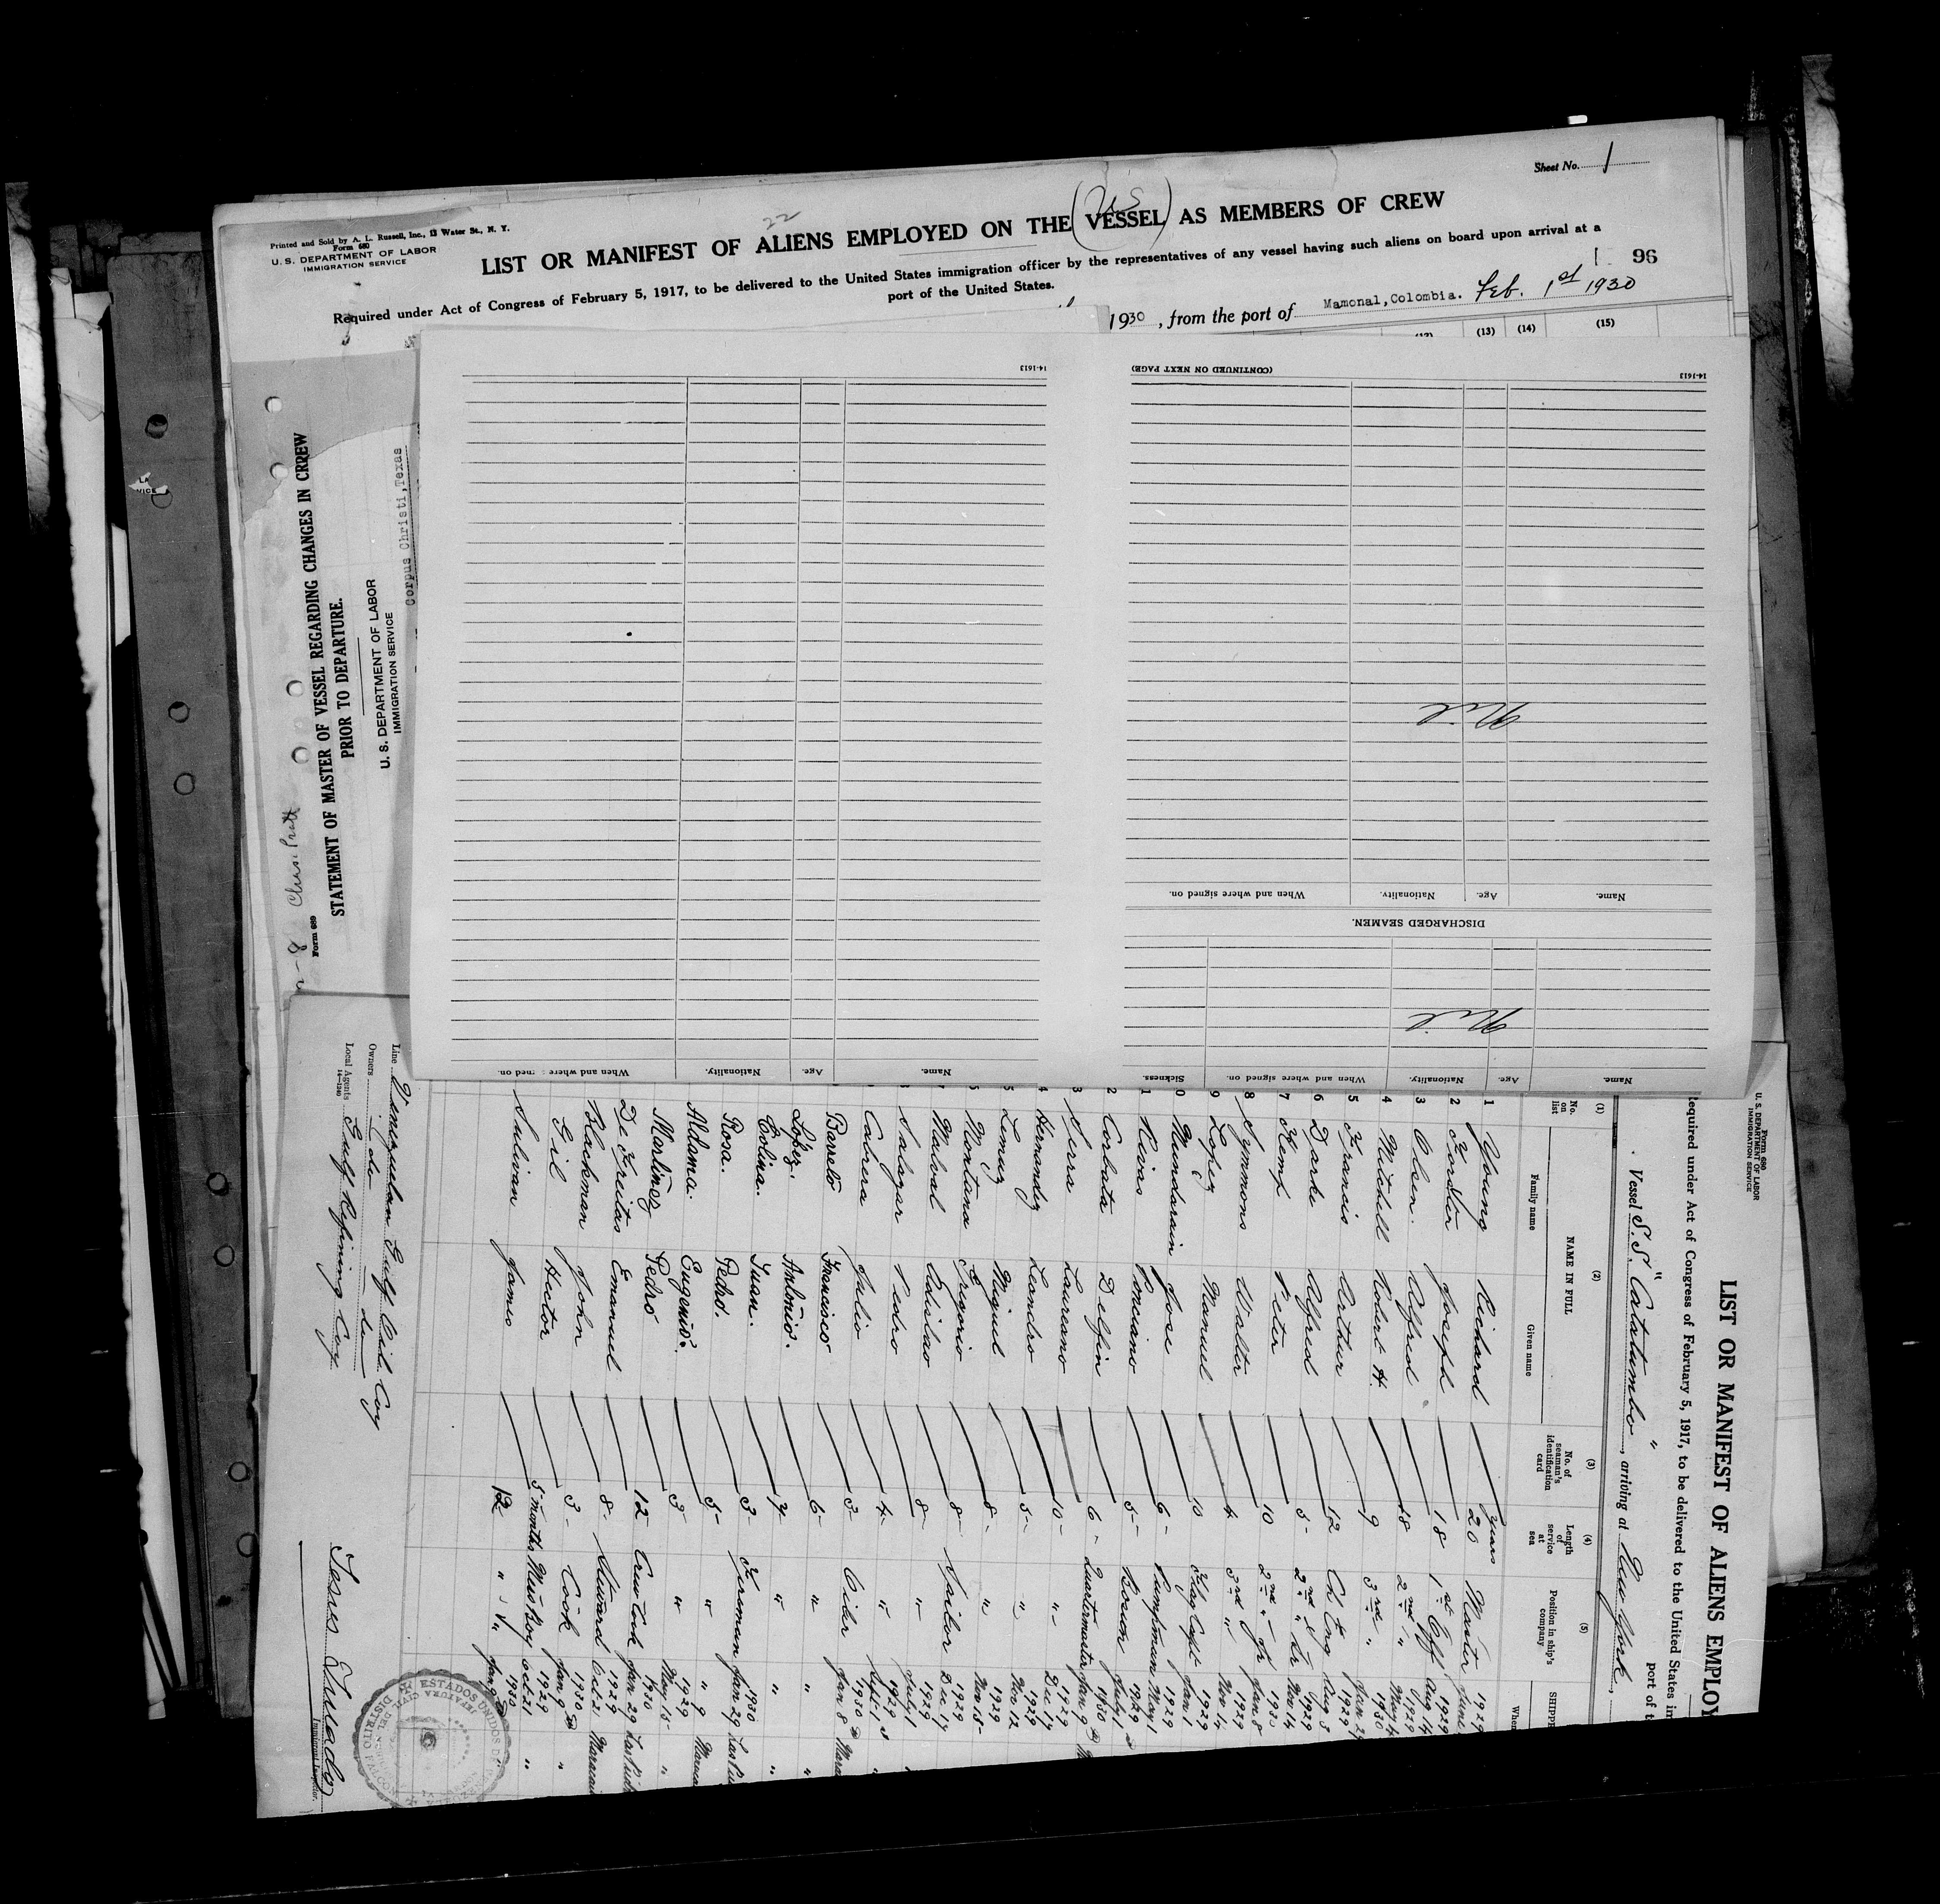 Sheet No. 1
Printed and Sold by A. L. Russell, Inc., 13 Water St., N. Y.
Form 680
U. S. DEPARTMENT OF LABOR
IMMIGRATION SERVICE
22
(US)
LIST OR MANIFEST OF ALIENS EMPLOYED ON THE VESSEL AS MEMBERS OF CREW
Required under Act of Congress of February 5, 1917, to be delivered to the United States immigration officer by the representatives of any vessel having such aliens on board upon arrival at a
port of the United States.
96
1930, from the port of Mamonal, Colombia. Feb. 1st 1930
(13) (14) (15)
Chas. Pratt
Form 689
STATEMENT OF MASTER OF VESSEL REGARDING CHANGES IN CREW
PRIOR TO DEPARTURE.
U. S. DEPARTMENT OF LABOR
IMMIGRATION SERVICE
Corpus Christi, Texas
Name. Age. Nationality. When and where signed on. Sickness.
Nil
DISCHARGED SEAMEN.
Name. Age. Nationality. When and where signed on.
Nil
(CONTINUED ON NEXT PAGE)
14-1613
Name. Age. Nationality. When and where ned on.
14-1613
Form 680
U. S. DEPARTMENT OF LABOR
IMMIGRATION SERVICE
LIST OR MANIFEST OF ALIENS EMPLOY
equired under Act of Congress of February 5, 1917, to be delivered to the United States im
port of t
Vessel S.S. "Catatumbo", arriving at New York,
(1) (2) (3) (4) (5)
No. on list
NAME IN FULL
Family name Given name
No. of seaman's identification card
Length of service at sea
Position in ship's company
SHIPPE
When
1 Young Richard 20 years Master 1929 June
2 Forster Joseph 18 1st Off 1929 Aug 14
3 Olsen. Alfred 18 2nd " 1929 May 4
4 Mitchell Robert H. 9 3rd " 1930 Jan 29
5 Francis Arthur 12 Ch Eng 1929 Aug 3
6 Darke Alfred 5 2nd " 1929 Nov 14
7 Kemp Peter 10 2nd " Jr 1930 Jan 8
8 Symmons Walter 4 3rd " 1929 Nov 14
9 Lopez Manuel 10 1929 Jan 1
0 Mundarain Jose 6 Pumpman 1929 May 1
1 Rivas Ponciano 5 Bosun 1929 July 1
2 Corbata Delfin 6 Quartermaster 1930 Jan 9
3 Serra Laureano 10 " 1929 Dec 14
4 Hernandez Leandro 5 " 1929 Nov 12
5 Lemuz Miguel 8 " 1929 Nov 15
6 Montana Gregorio 8 Sailor 1929 Dec 14
Malval Edisitao 8 " 1929 July 1
Salazar Pedro 4 " 1929 Sept 1
Cabrera Julio 3 Oiler 1930 Jan 8
Bareto Francisco 6 " "
López. Antonio. 4 " "
Evolina. Juan. 3 Fireman 1930 Jan 29
Rosa. Pedro. 5 " " 9
Aldama. Eugenio. 3 " 1929 May 15 "
Martinez Pedro 12 Crew Cook 1930 Jan 29
De Freitas Emanuel 8 Steward 1929 Oct 21
Blackman John 3 Cook 1930 Jan 9 "
Gil Hector 5 months Mess Boy 1929 Oct 21 "
Sulivan James 12 " " 1930
Line Venezuelan Gulf Oil Coy
Owners do do
Local Agents Gulf Refining Coy
14—1240
Immigrant Inspector.
ESTADOS UNIDOS DE
JEFATURA CIVIL DEL
DISTRITO FALCON